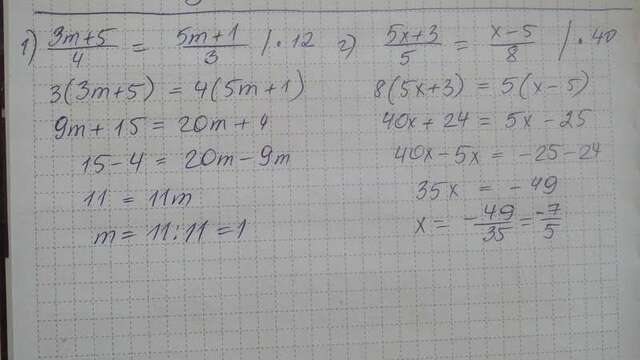 1) (3m+5)/4 = (5m+1)/3 / · 12
3(3m+5) = 4(5m+1)
9m+15 = 20m+4
15-4 = 20m-9m
11 = 11m
m = 11:11 = 1
2) (5x+3)/5 = (x-5)/8 / · 40
8(5x+3) = 5(x-5)
40x+24 = 5x-25
40x-5x = -25-24
35x = -49
x = -49/35 = -7/5